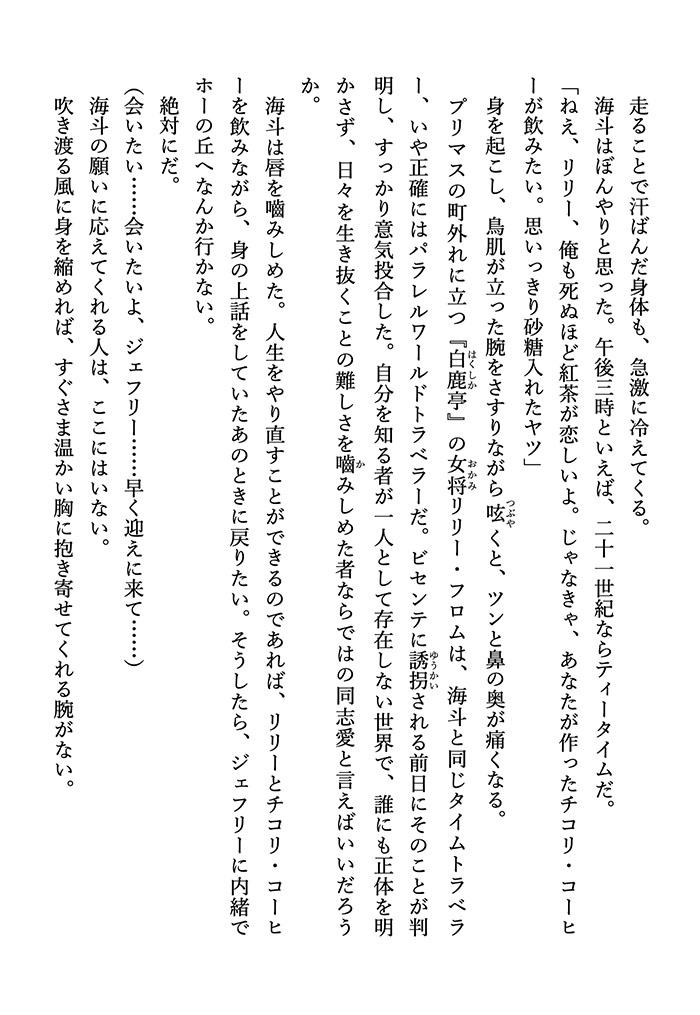 走ることで汗ばんだ身体も、急激に冷えてくる。
海斗はぼんやりと思った。午後三時といえば、二十一世紀ならティータイムだ。
「ねえ、リリー、俺も死ぬほど紅茶が恋しいよ。じゃなきゃ、あなたが作ったチコリ・コーヒ
ーが飲みたい。思いっきり砂糖入れたヤツ」
身を起こし、鳥肌が立った腕をさすりながら呟くと、ツンと鼻の奥が痛くなる。
プリマスの町外れに立つ『白鹿亭』の女将リリー・フロムは、海斗と同じタイムトラベラ
ー、いや正確にはパラレルワールドトラベラーだ。ビセンテに誘拐される前日にそのことが判
明し、すっかり意気投合した。自分を知る者が一人として存在しない世界で、誰にも正体を明
かさず、日々を生き抜くことの難しさを嚙みしめた者ならではの同志愛と言えばいいだろう
か。
海斗は唇を嚙みしめた。人生をやり直すことができるのであれば、リリーとチコリ・コーヒ
ーを飲みながら、身の上話をしていたあのときに戻りたい。そうしたら、ジェフリーに内緒で
ホーの丘へなんか行かない。
絶対にだ。
(会いたい……会いたいよ、ジェフリー……早く迎えに来て……)
海斗の願いに応えてくれる人は、ここにはいない。
吹き渡る風に身を縮めれば、すぐさま温かい胸に抱き寄せてくれる腕がない。